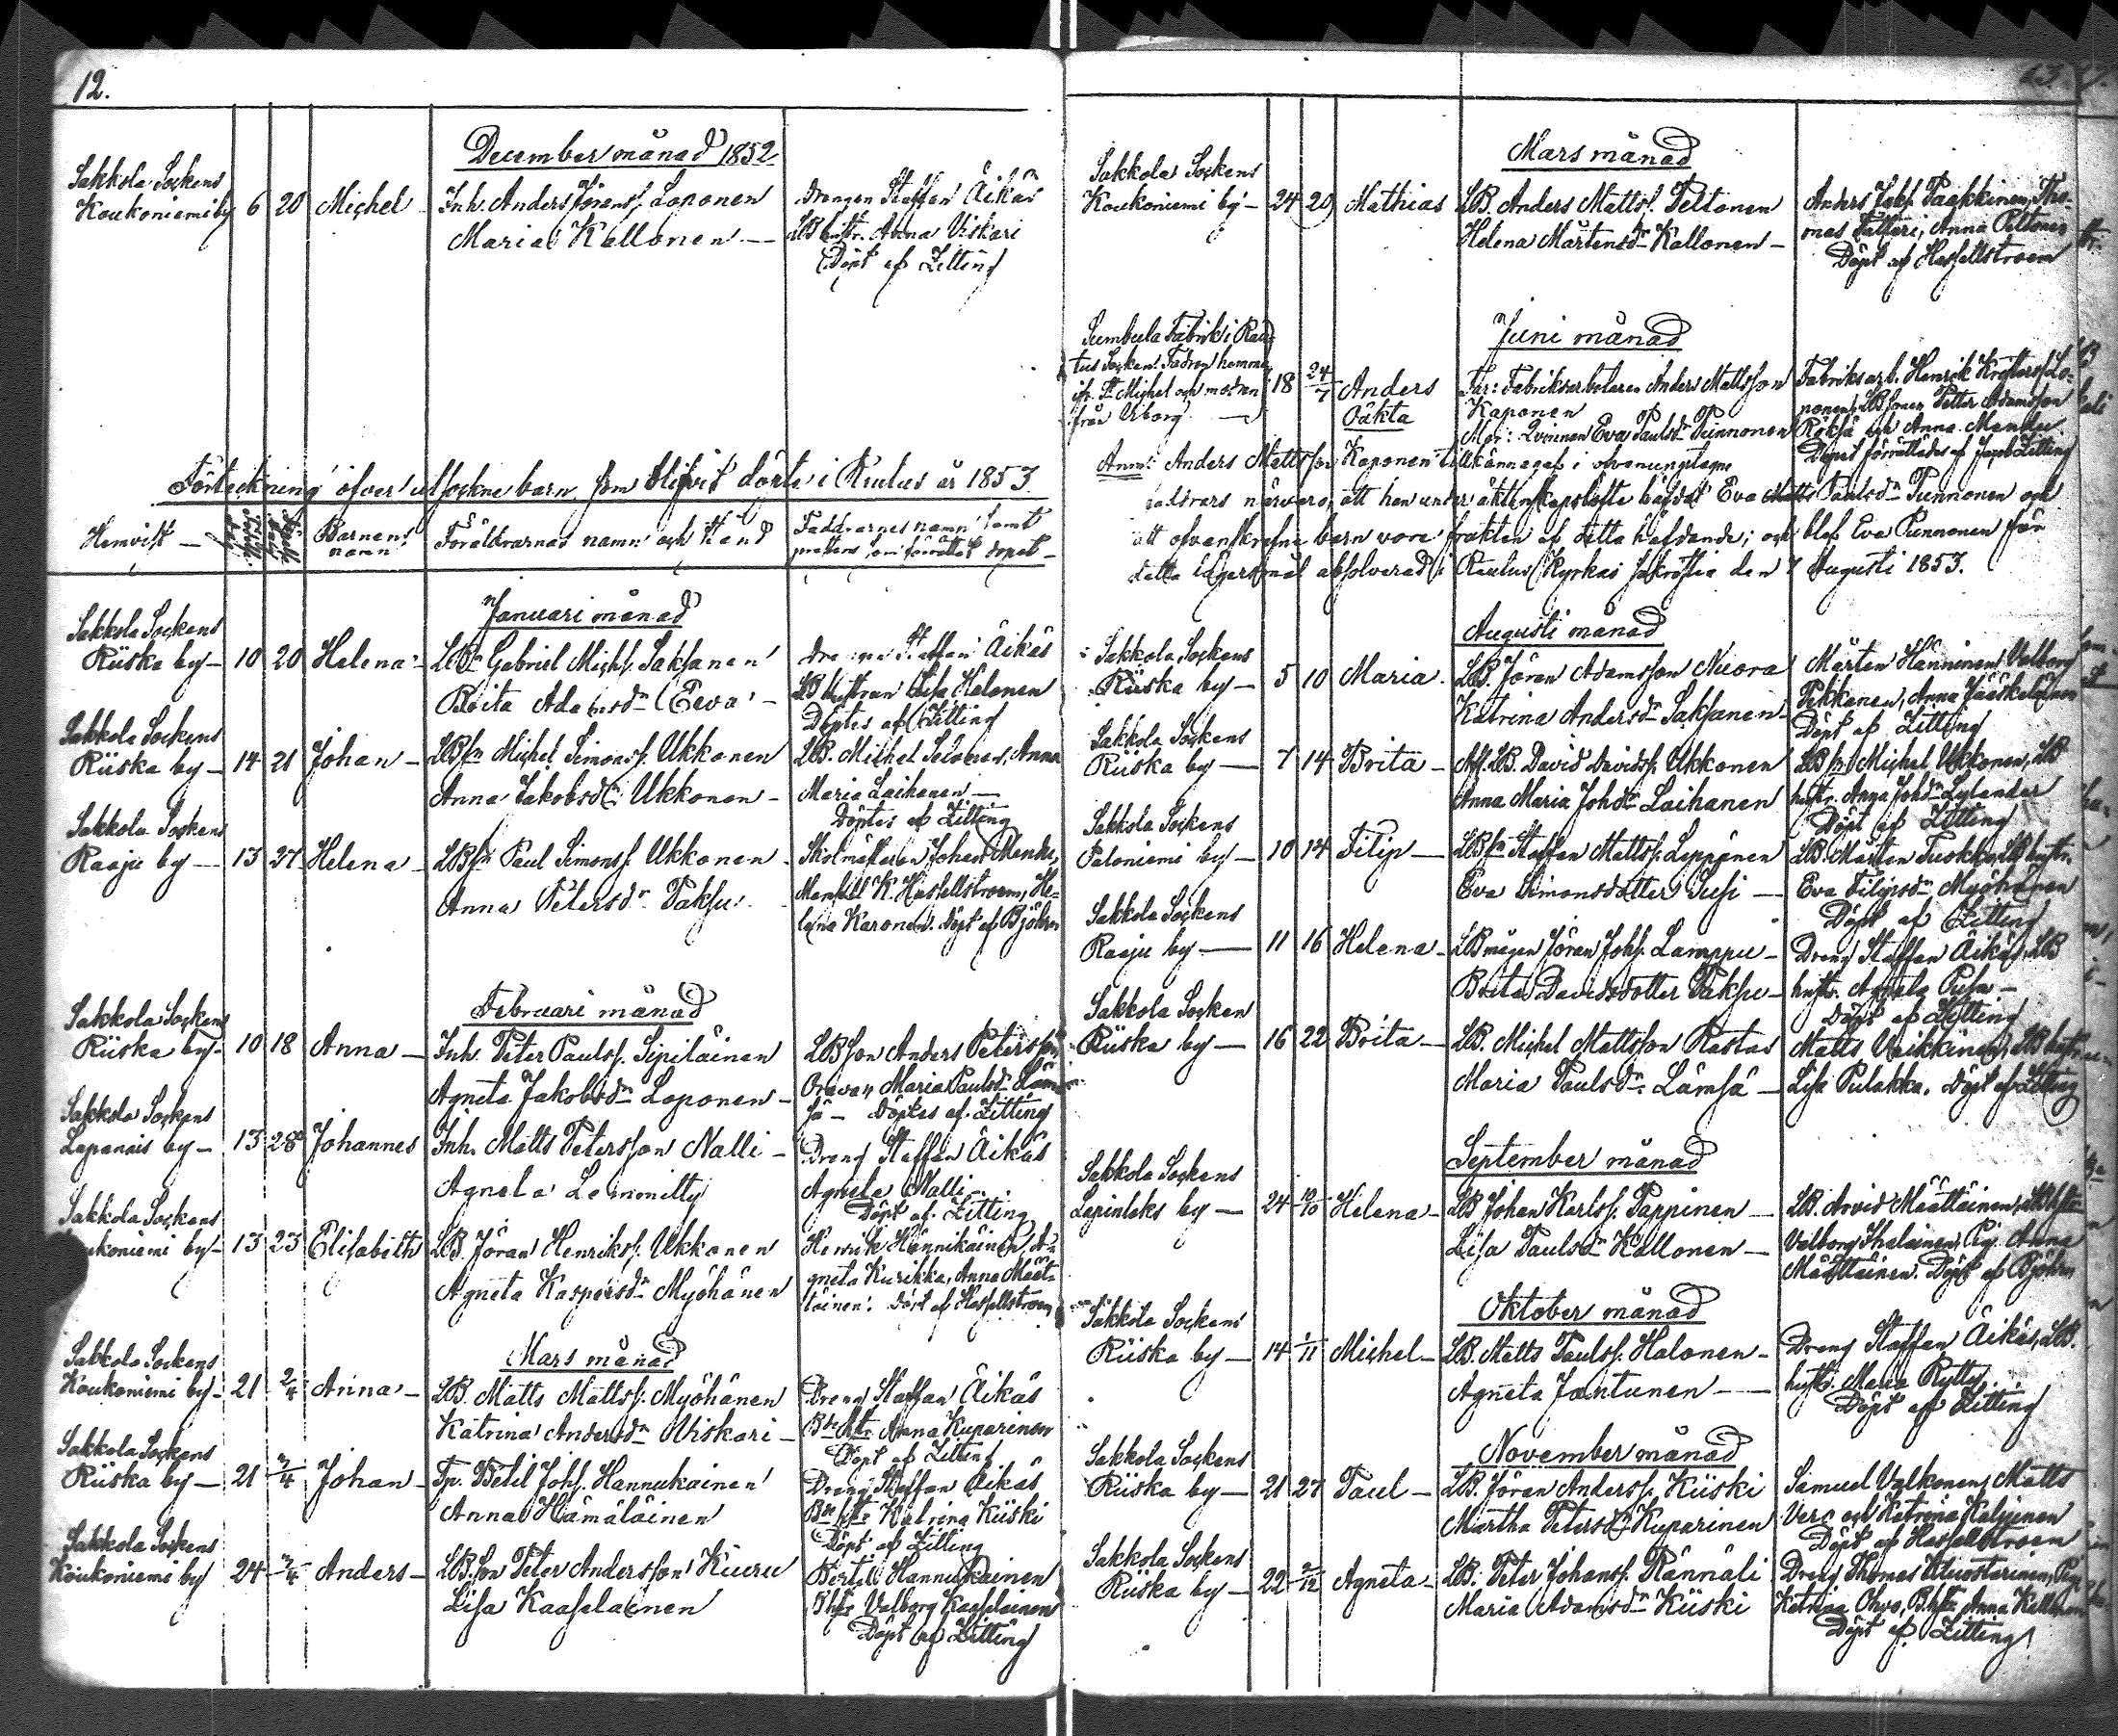 12.
December månad 1852
Sakkola Sockens
Koukoniemi by 6 20 Michel Inh. Anders Jörenss. Loponen Drengen Staffan Äikäs
Maria Kallonen — LB hustr. Anna Viskari
Döpt af Zitting
Förteckning öfver utsockne barn som blifvit döpte i Rautus år 1853
Hemvist — Barnens namn Föräldrarnas namn och stånd Faddrarnes namn samt
prestens, som förrättat dopet —
Januari månad
Sakkola Sockens
Riiska by — 10 20 Helena — LBr Gabriel Michs. Saksanen Staffan Äikäs
Brita Adamsdr Eeva — LB hustrun Lisa Halonen
Döptes af Zitting
Sakkola Sockens
Riiska by — 14 21 Johan — LBsn Michel Simonss. Ukkonen LB. Michel Anna
Anna Jakobsdr Ukkonen — Maria Laihanen —
Döptes af Zitting
Sakkola Sockens
Raaju by — 13 27 Helena — LBsn Paul Simonss. Ukkonen — Skolmästaren Johan Mandu,
Anna Petersdr Paksu Mamsell K. Hassellstroem, He-
lena Karonen. Döpt af Björkm
Februari månad
Sakkola Sockens
Riiska by — 10 18 Anna — Inh. Peter Paulss. Sipiläinen LBson Anders Petersson
Agneta Jakobsdr Loponen — Orava, Maria Paulsdr Läm-
sä — Döptes af Zitting
Sakkola Sockens
Lapanais by — 13 28 Johannes Inh. Matts Petersson Nalli — Dreng Staffan Äikäs
Agneta Lemmitty Agneta Nalli
Döpt af Zitting
Sakkola Sockens
Koukoniemi by — 13 23 Elisabeth LB. Jöran Henrikss. Ukkonen Henrik Hännikäinen, A-
Agneta Kaspersdr Myöhänen gneta Kurikka, Anna Määt-
täinen. Döpt af Hassellstroem
Mars månad
Sakkola Sockens
Koukoniemi by — 21 2/4 Anna — LB. Matts Mattss. Myöhänen Dreng Staffan Äikäs
Katrina Andersdr Viskari — Anna Kuparinen
Döpt af Zitting
Sakkola Sockens
Riiska by — 21 2/4 Johan — Tp. Betil Johs. Hannukainen Dreng Staffan Äikäs
Anna Hämäläinen Katrina Kiiski
Döpt af Zitting
Sakkola Sockens
Koukoniemi by 24 2/4 Anders — LB.son Peter Andersson Kuuru Bertil Hannukainen
Lisa Kaaselainen Valborg Kaaselainen
Döpt af Zitting
Mars månad
Sakkola Sockens
Koukoniemi by — 24 29 Mathias LB. Anders Mattss. Peltonen Anders Jaks. Paakkinen, Tho-
Helena Mårtensdr Kallonen — mas Tatteri, Anna Peltonen
Döpt af Hassellstroem
Juni månad
Sumbula Fabrik i Rau-
tus Socken. Fadren hemma
ifr. St Michel och modren
från Viborg —
18 24/7 Anders
Oäkta
Far: Fabriksarbetaren Anders Mattsson
Kaponen
Mor: Qvinnan Eva Paulsdr Punnonen
Fabriksarb. Henrik Kristerss. Lo-
ponen, LBsonen Petter Adamsson
Räksä och Anna Mandu
Dopet förrättades af Jacob Zitting
Anm: Anders Mattsson Kaponen tillkännagaf i ofvanuptagne
faddrars närvaro, att han under äktenskapslöfte häfdat Eva Paulsdr Punnonen och
att ofvanskrefne barn vore frukten af detta häfdande; och blef Eva Punnonen för
detta lägersmål absolverad i Rautus Kyrkas sakristia den 7 Augusti 1853.
Augusti månad
Sakkola Sockens
Riiska by — 5 10 Maria LB. Jöran Adamsson Nuora Mårten Hänninen, Valborg
Katrina Andersdr Saksanen — Pekkanen, Anna Jääskeläinen
Döpt af Zitting
Sakkola Sockens
Riiska by — 7 14 Brita — LB. David Davidss. Ukkonen LBsn Michel Ukkonen, LB
Anna Maria Johsdr Laihanen hustr. Anna Johsdr Lylander
Döpt af Zitting
Sakkola Sockens
Paloniemi by — 10 14 Filip — LBsn Staffan Mattss. Leppänen LB. Mårten Tuokko, LB hustr.
Eva Simonsdotter Susi — Eva Filipsdr Myöhänen
Döpt af Zitting
Sakkola Sockens
Raaju by — 11 16 Helena — LBmågen Jöran Johs. Lamppu — Dreng Staffan Äikäs, LB
Brita Davidsdotter Paksu — hustr. Agneta Pusa —
Döpt af Zitting
Sakkola Socken
Riiska by — 16 22 Brita — LB. Michel Mattsson Rastas Matts Vaikkinen, LB hustrun
Maria Paulsdr. Lämsä — Lisa Pulakka. Döpt af Zitting
September månad
Sakkola Sockens
Lapinlaks by — 24 10/10 Helena — LB Johan Karlss. Pappinen — LB. Arvid Määttäinen,
Lisa Paulsdr Kallonen — Valborg Ihalainen, Pig. Anna
Määttäinen. Döpt af Björkm
Oktober månad
Sakkola Sockens
Riiska by — 14 1/11 Michel — LB. Matts Paulss. Halonen — Dreng Staffan Äikäs, LB.
Agneta Jantunen — hustr. Maria Rytty
Döpt af Zitting
November månad
Sakkola Sockens
Riiska by — 21 27 Paul — LB. Jöran Anderss. Kiiski Samuel Valkonen, Matts
Martha Petersdr Kuparinen Vere och Katrina Kaljunen
Döpt af Hassellstroem
Sakkola Sockens
Riiska by — 22 2/12 Agneta — LB. Peter Johanss. Rännäli Dreng Thomas
Maria Adamsdr Kiiski Katrina Orvo, Anna Kallonen
Döpt af Zitting